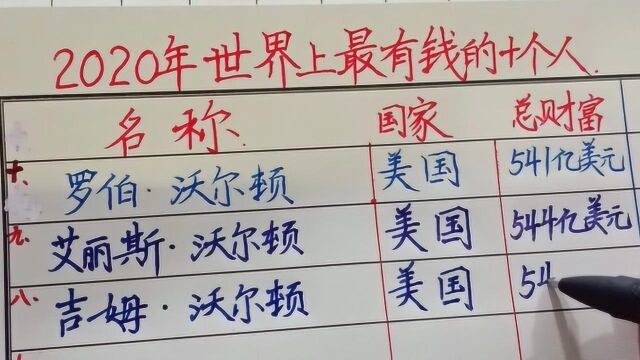 2020年世界上最有钱的十个人.
名称. 国家 总财富
十、罗伯·沃尔顿 美国 541亿美元
九、艾丽斯·沃尔顿 美国 544亿美元
八、吉姆·沃尔顿 美国 54